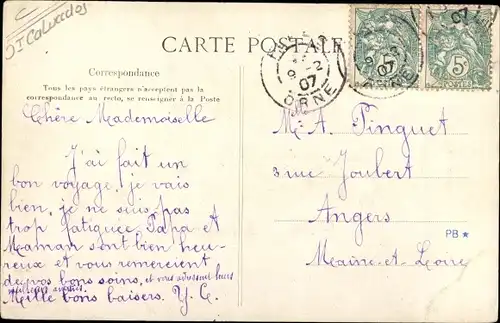 Calvados
CARTE POSTALE
Correspondance
Tous les pays étrangers n'acceptent pas la
correspondance au recto, se renseigner à la Poste
Chère Mademoiselle
J'ai fait un
bon voyage, je vais
bien, je ne suis pas
trop fatiguée Papa et
Maman sont bien heu-
reux et vous remercient
de vos bons soins, et vous adressent leurs
meilleures amitiés.
Mille bons baisers. Y. C.
9 -2
07
ORNE
07
ORNE
07
5c
POSTES
M. A. Pinguet
3 rue Joubert
Angers
Maine-et-Loire
PB ★